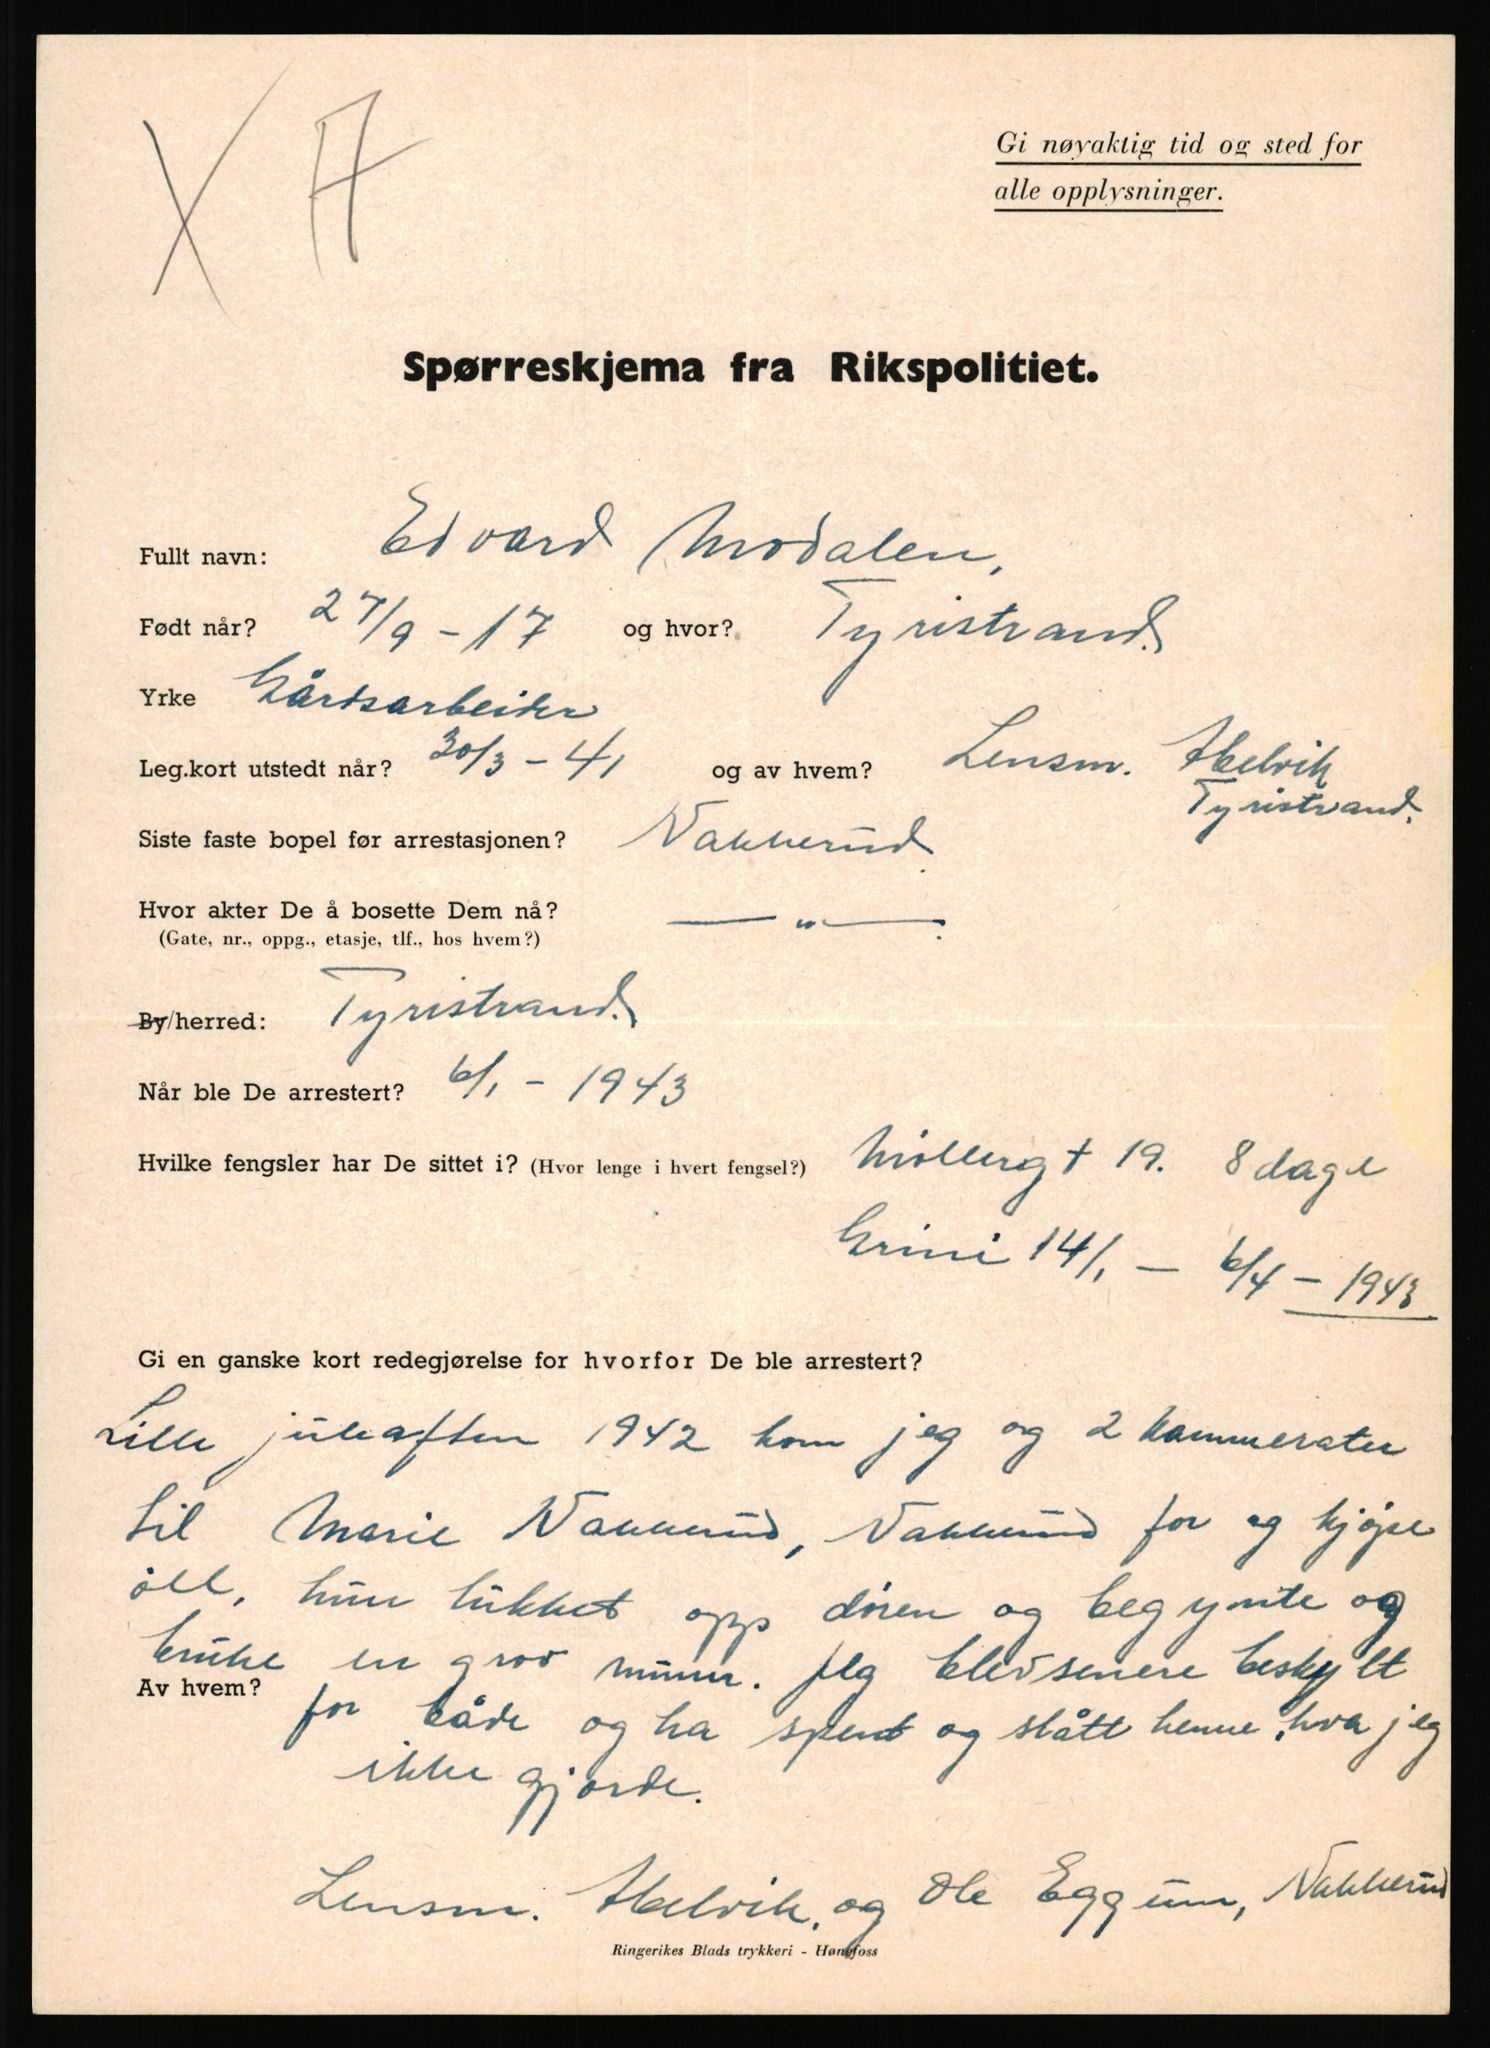 X A
Gi nøyaktig tid og sted for
alle opplysninger.
Spørreskjema fra Rikspolitiet.
Fullt navn: Edvard Modalen,
Født når? 27/9 - 17 og hvor? Tyristrand.
Yrke Gårdsarbeider
Leg.kort utstedt når? 30/3 - 41 og av hvem? Lensm. Helvik
Tyristrand.
Siste faste bopel før arrestasjonen? Nakkerud.
Hvor akter De å bosette Dem nå? — " —.
(Gate, nr., oppg., etasje, tlf., hos hvem?)
By/herred: Tyristrand.
Når ble De arrestert? 6/1 - 1943
Hvilke fengsler har De sittet i? (Hvor lenge i hvert fengsel?) Møllergt 19. 8 dage
Grini 14/1 - 6/4 - 1943
Gi en ganske kort redegjørelse for hvorfor De ble arrestert?
Lille juleaften 1942 kom jeg og 2 kammerater
til Marie Nakkerud, Nakkerud for og kjøpe
øll, hun lukket opp døren og begynte og
bruke en grov munn. Jeg blev senere beskylt
Av hvem?
for både og ha spent og slått henne, hva jeg
ikke gjorde.
Lensm. Helvik, og Ole Eggum, Nakkerud
Ringerikes Blads trykkeri - Hønefoss